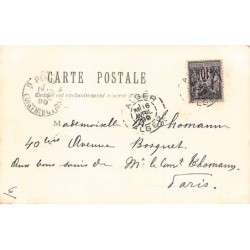 CARTE POSTALE
Ce côté est exclusivement réservé à l'adresse
ALGER
16
AVRIL
ALGER
10
Mademoiselle Thomann
40 bis Avenue Bosquet
Aux bons soins de Mr le Comt Thomann
Paris.